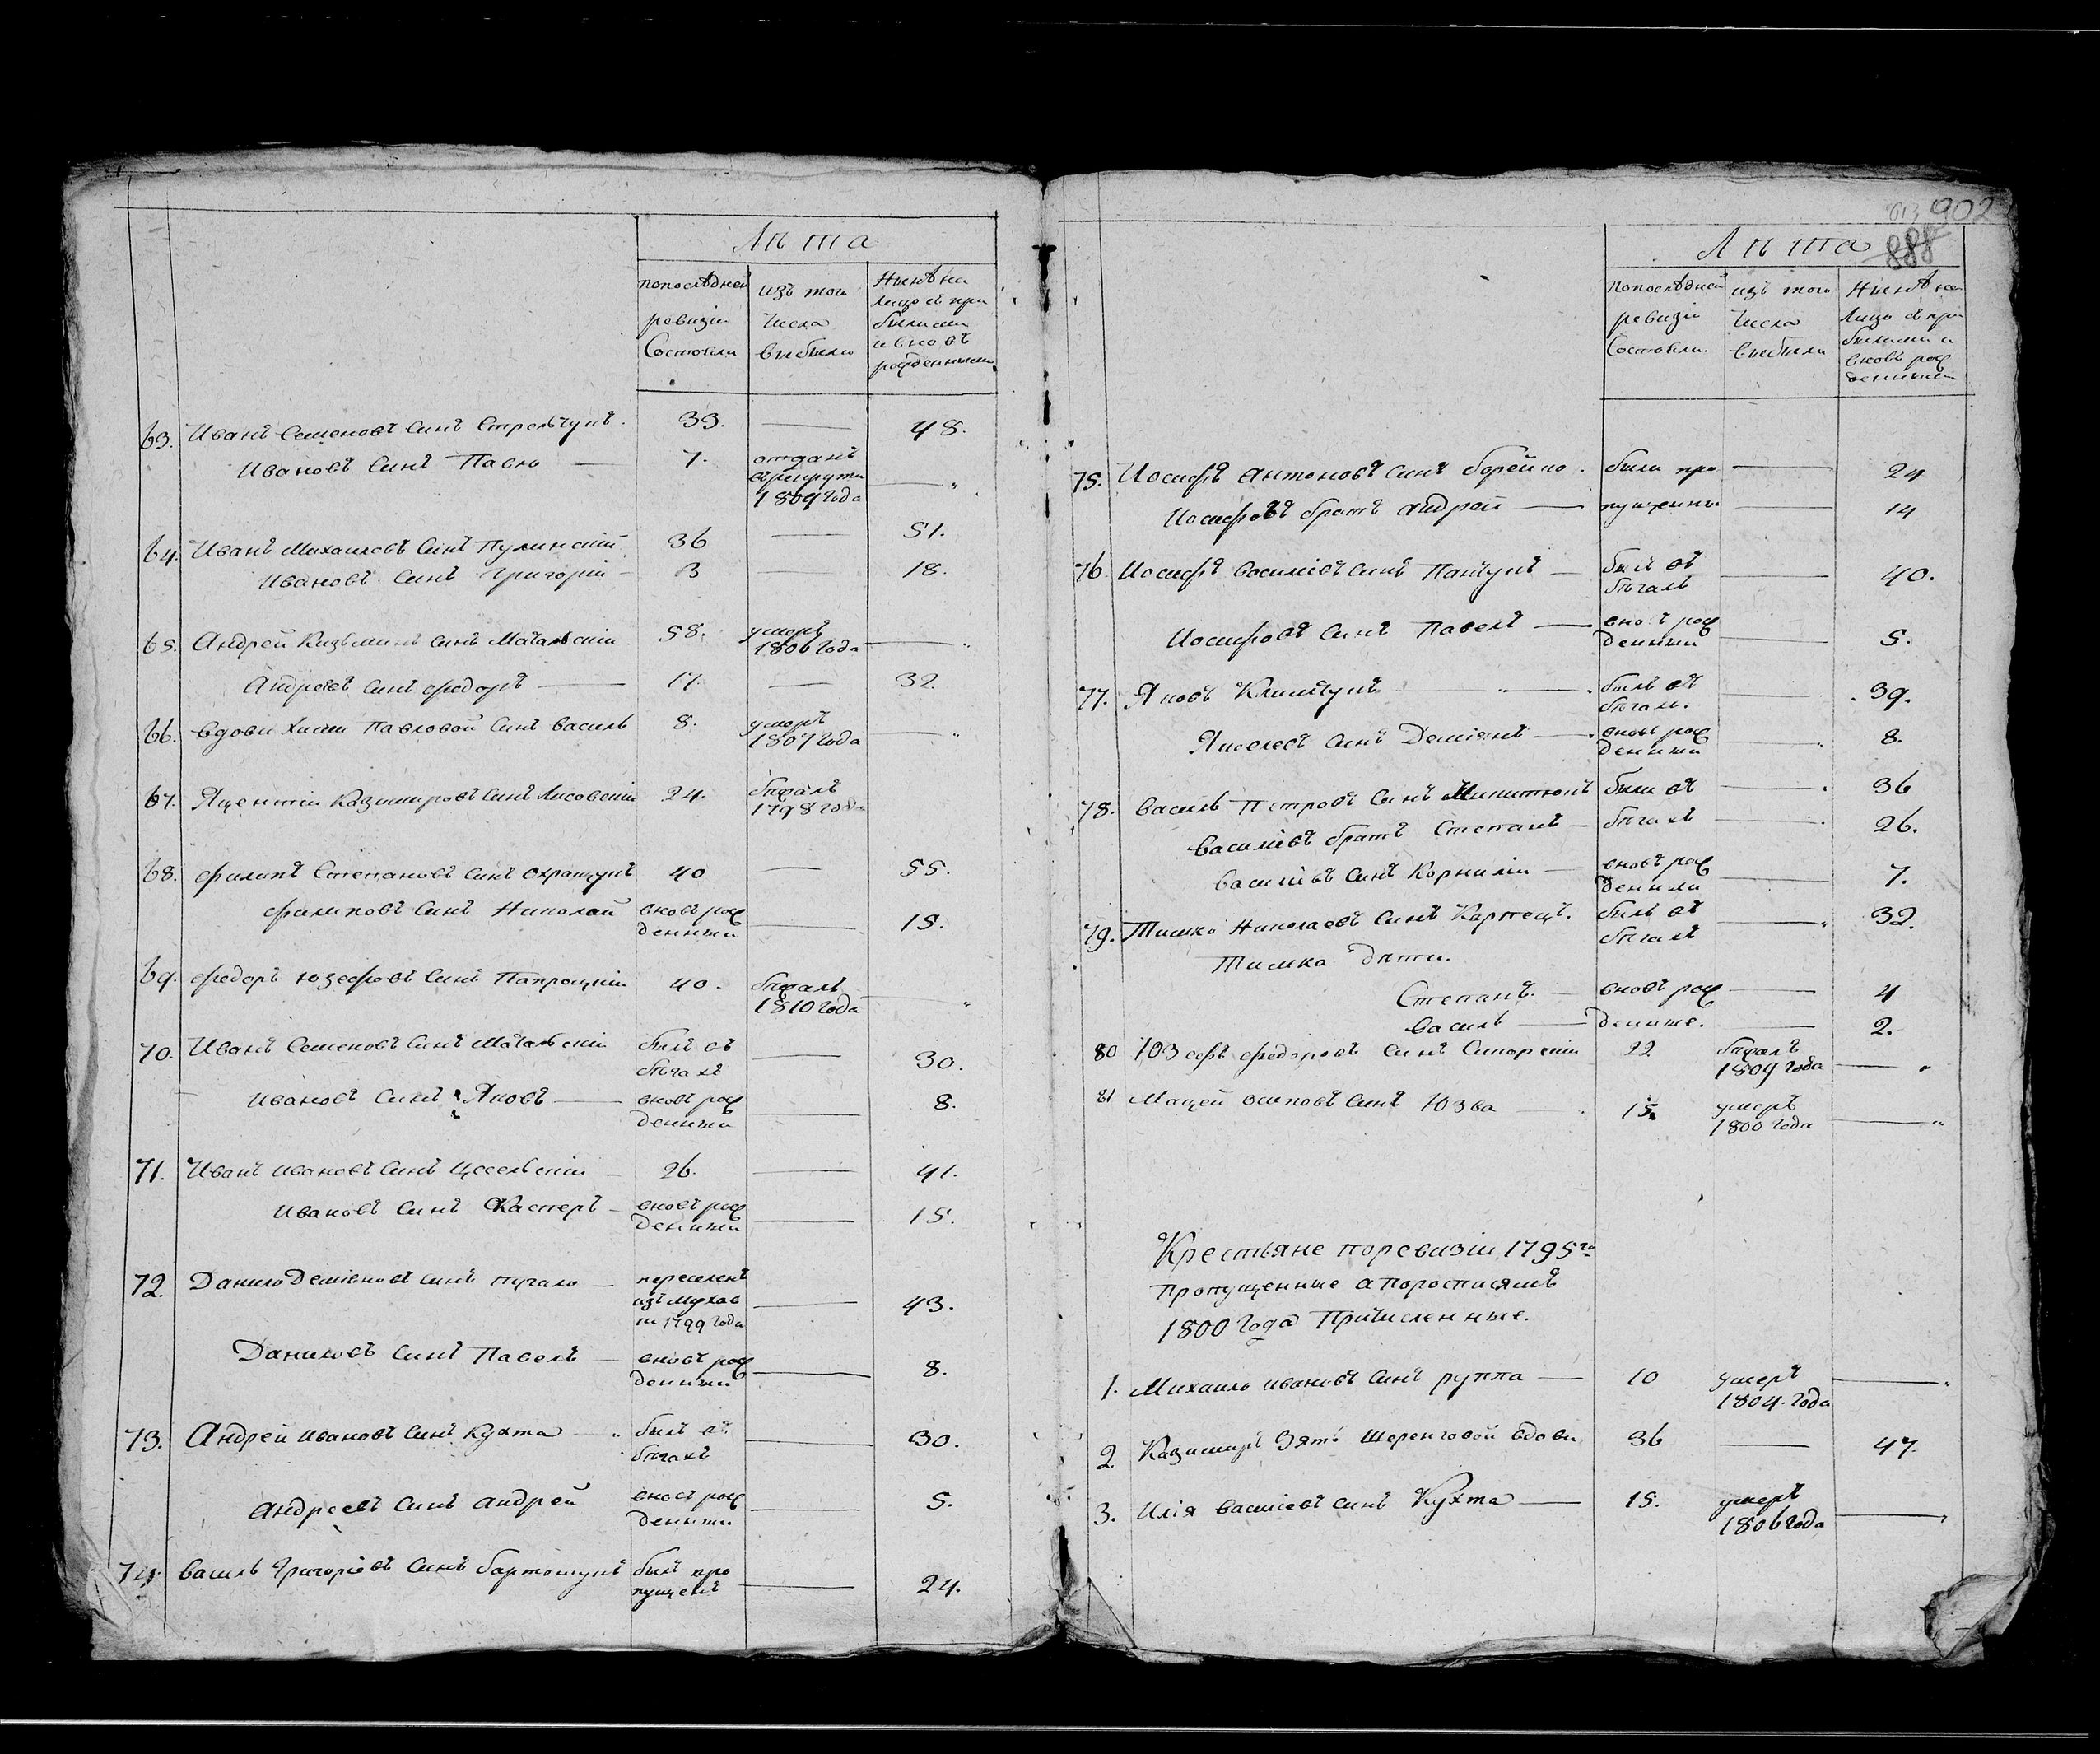 Лѣта
попослѣдней ревизіи Состояли
изъ того Числа выбыло
Нынѣ на лицо съ прибылыми и вновь рожденными
63. Иванъ Семеновъ Синъ Стрельчунъ. 33. — 48.
Ивановъ Синъ Павло — 7. отданъ
врекруты
1809 года — „
64. Иванъ Михаиловъ Синъ Пулинский 36 — 51.
Ивановъ Синъ Григорій — 3 — 18.
65. Андрей Кузьминъ Синъ 58. умеръ
1806 года — „
Андреевъ Синъ Федоръ — 17. — 32.
66. Вдовы Павловой Синъ Василь 8. умеръ
1807 года — „
67. Яцентій Казимировъ Синъ Лисовскій 24. бѣжалъ
1798 года
68. Филипъ Степановъ Синъ 40 — 55.
Филиповъ Синъ Николай вновь рож
денный — 15.
69. Федоръ Юзефовъ Синъ Папроцкій 40. бѣжалъ
1810 года — „
70. Иванъ Семеновъ Синъ былъ въ
бѣгахъ — 30.
Ивановъ Синъ Яковъ — вновь рож
денный — 8.
71. Иванъ Ивановъ Синъ — 26. — 41.
Ивановъ Синъ Касперъ — вновь рож
денный — 15.
72. Данило Деміановъ Синъ Пугало — переселенъ
изъ
1799 года — 43.
Даниловъ Синъ Павелъ — вновь рож
денный — 8.
73. Андрей Ивановъ Синъ Кухта былъ въ
бѣгахъ — 30.
Андреевъ Синъ Андрей вновь рож
денный — 5.
74. Василь Григоріевъ Синъ Бартошунъ былъ про
пущенъ — 24.
902
888
Лѣта
Попослѣдней ревизіи Состояли.
изъ того Числа выбыли
Нынѣ на Лицо съ прибылыми и вновь рожденными
75. Иосифъ Антоновъ Синъ Борейко. были про — 24
Иосифовъ братъ Андрей — пущенны — 14
76 Иосифъ Василіевъ Синъ — былъ въ
бѣгахъ — 40.
Иосифовъ Синъ Павелъ — вновь рож
денный — 5.
77. Яковъ Климчунъ — былъ въ
бѣгахъ. — 39.
Яковлевъ Синъ Деміянъ — вновь рож
денный — 8.
78. Василь Петровъ Сынъ Микитюкъ были въ — 36
Василіевъ братъ Степанъ — бѣгахъ — 26.
Василіевъ Синъ Корнилій — вновь рож
денный — 7.
79. Тимко Николаевъ Синъ Карпецъ. былъ въ
бѣгахъ — 32.
Тимка Дѣти.
Степанъ. — вновь рож — 4
Василь — денные. — 2.
80 Юзефъ Федоровъ Синъ Сикорскій 22 бѣжалъ
1809 года — „
81 Мацей Осиповъ Синъ Юзва 15. умеръ
1800 года — „
Крестьяне поревизіи 1795го
Пропущенные а поросписямъ
1800 Года Причисленные.
1. Михаило Ивановъ Синъ Руппа — 10 умеръ
1804. года — „
2. Казимиръ Зять Шеренговой вдовы 36 — 47.
3. Илія Василіевъ Синъ Кухта — 15. умеръ
1806 года — „